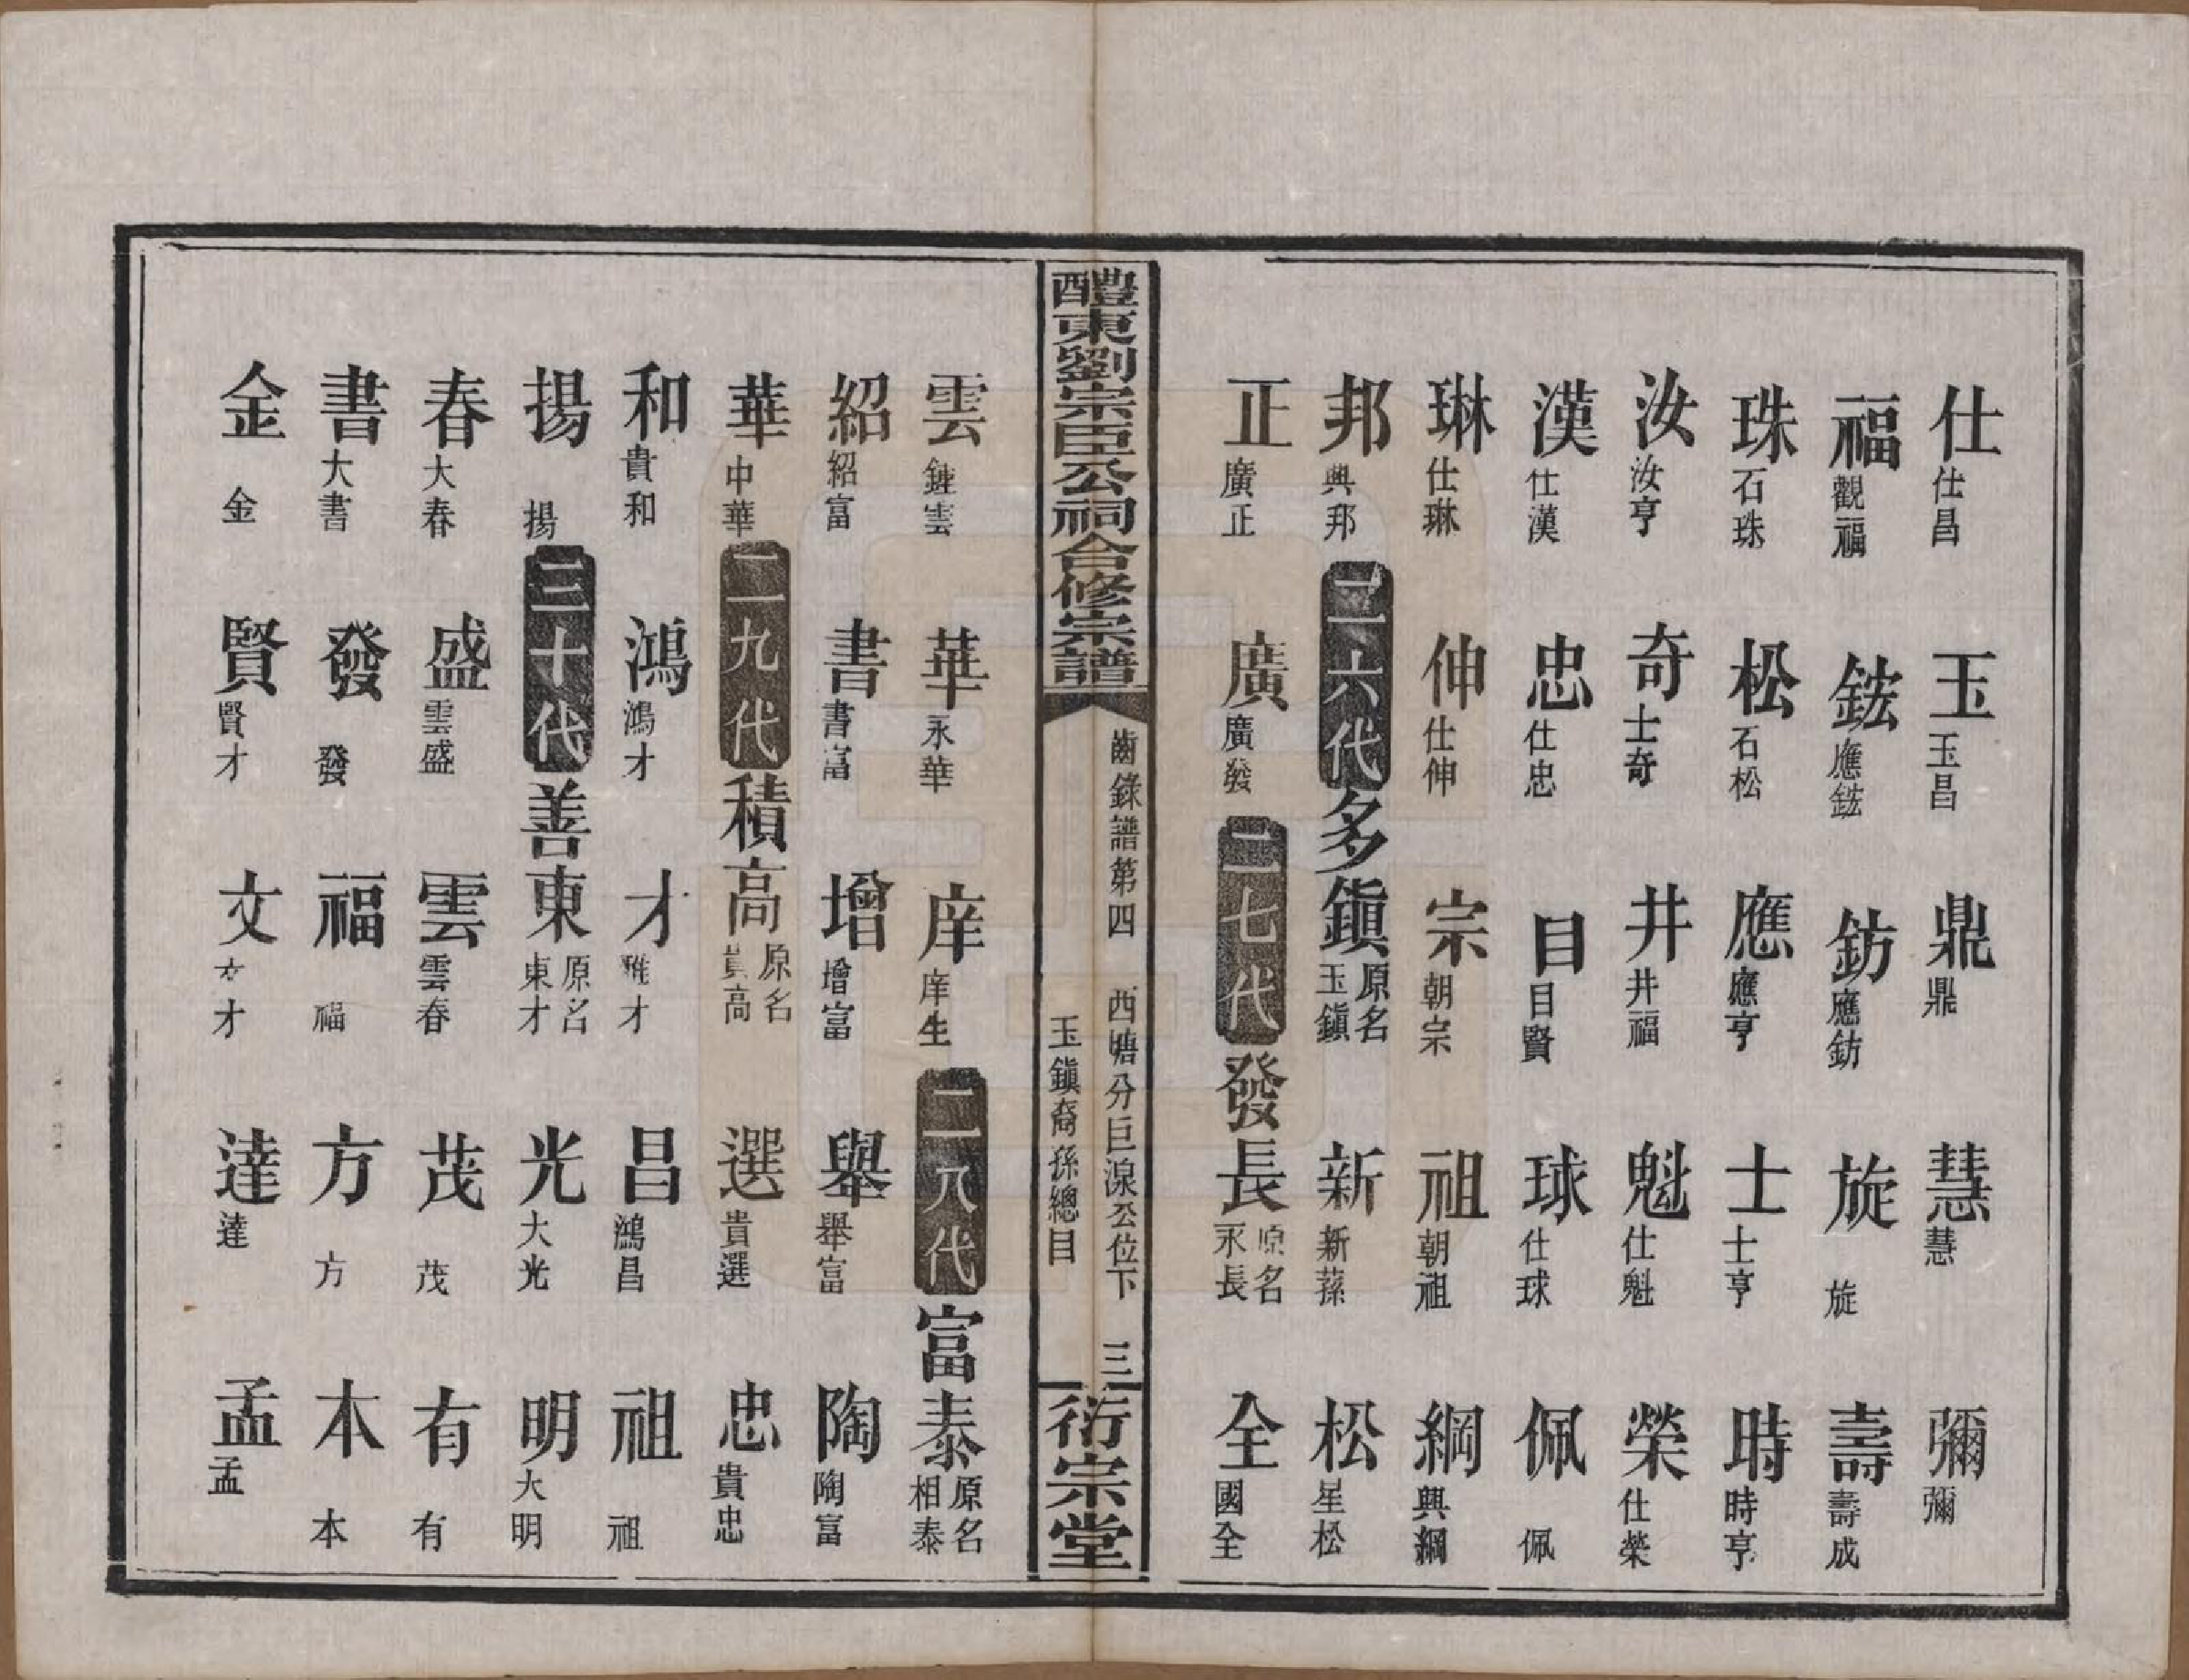 仕仕昌 玉玉昌 鼎鼎 慧慧 彌彌
福觀福 鈜應鈜 鈁應鈁 旋旋 壽壽成
珠石珠 松石松 應應亨 士士亨 時時亨
汝汝亨 奇士奇 井井福 魁仕魁 榮仕榮
漢仕漢 忠仕忠 目目賢 球仕球 佩佩
琳仕琳 伸仕伸 宗朝宗 祖朝祖 綱興綱
邦興邦 二六代 多鎮原名玉鎮 新新蓀 松星松
正廣正 廣廣發 二七代 發長原名永長 全國全
醴東劉宗臣公祠合修宗譜
齒錄譜第四 西塘分巨湶公位下 三
玉鎮裔孫總目
衍宗堂
雲鏈雲 華永華 庠庠生 二八代 富泰原名相泰
紹紹富 書書富 增增富 舉舉富 陶陶富
華中華 二九代 積高原名貴高 選貴選 忠貴忠
和貴和 鴻鴻才 才雅才 昌鴻昌 祖祖
揚揚 三十代 善東原名東才 光大光 明大明
春大春 盛雲盛 雲雲春 茂茂 有有
書大書 發發 福福 方方 本本
金金 賢賢才 文文才 達達 孟孟